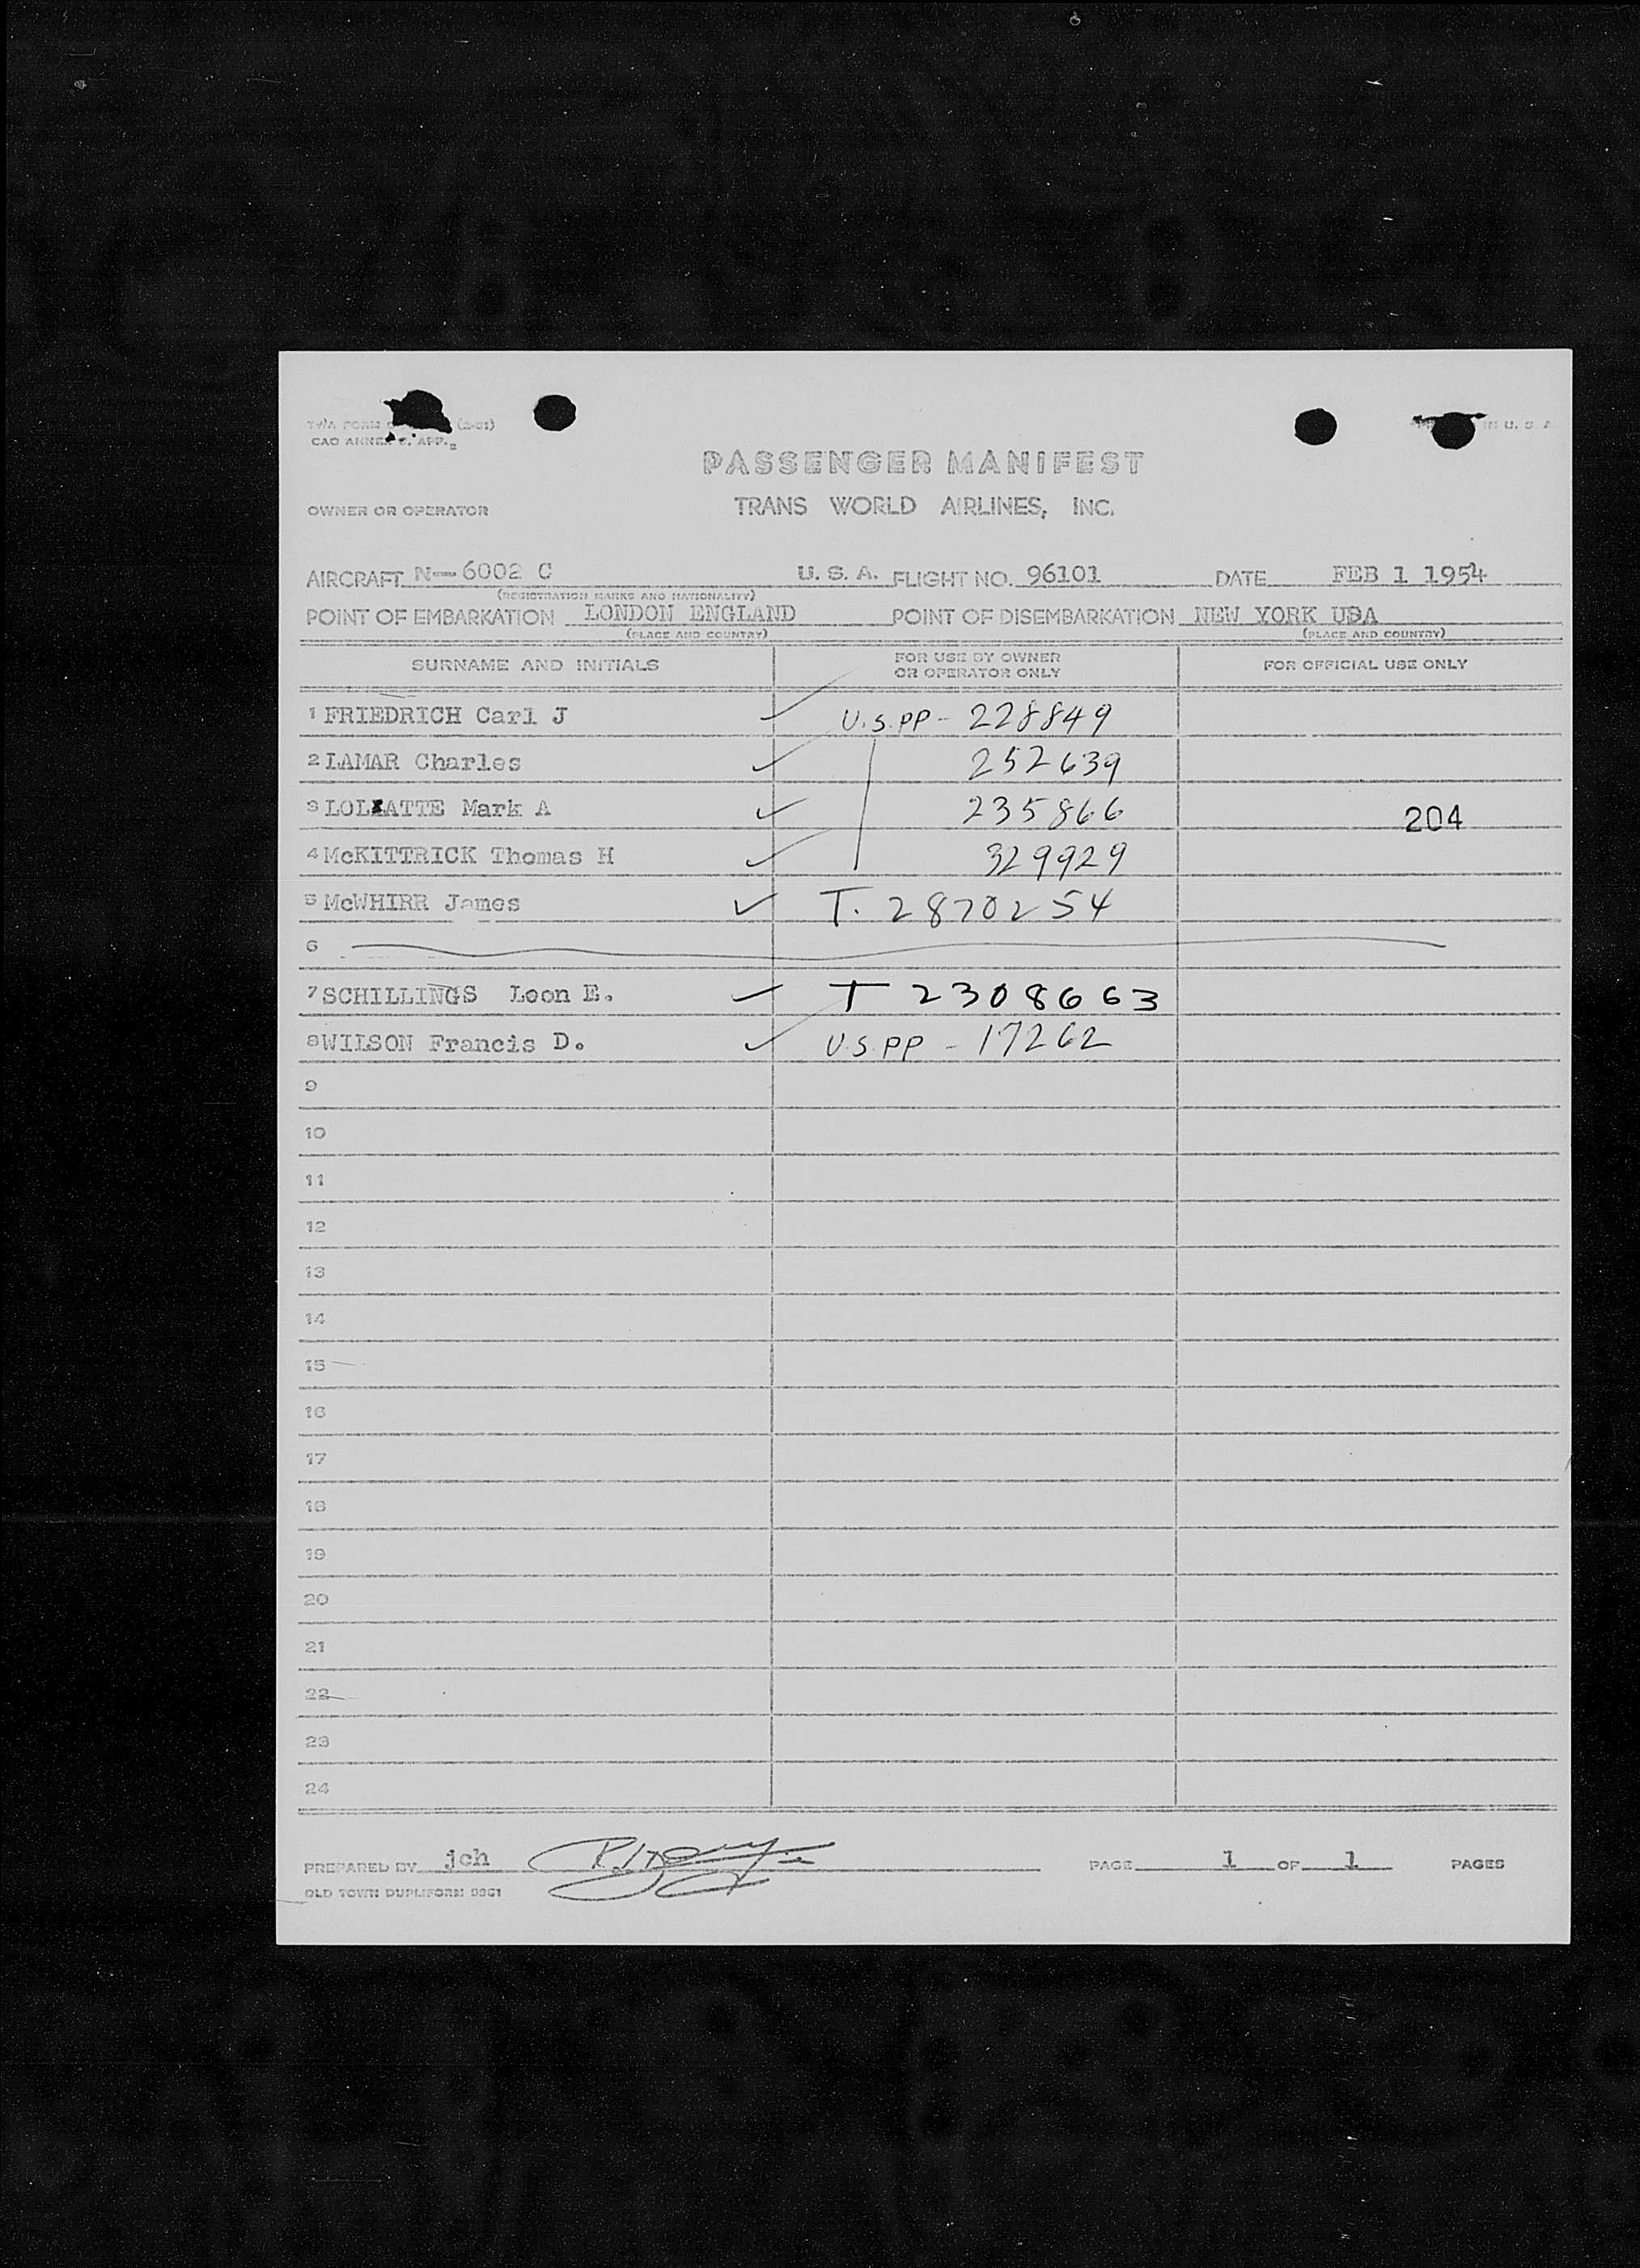 TWA FORM (2-51)
CAO ANNEX 9, APP. 2
IN U. S. A.
PASSENGER MANIFEST
OWNER OR OPERATOR TRANS WORLD AIRLINES, INC.
AIRCRAFT N-6002 C U. S. A. FLIGHT NO. 96101 DATE FEB 1 1954
(REGISTRATION MARKS AND NATIONALITY)
POINT OF EMBARKATION LONDON ENGLAND POINT OF DISEMBARKATION NEW YORK USA
(PLACE AND COUNTRY) (PLACE AND COUNTRY)
SURNAME AND INITIALS FOR USE BY OWNER OR OPERATOR ONLY FOR OFFICIAL USE ONLY
1 FRIEDRICH Carl J U.S.PP - 228849
2 LAMAR Charles 252639
3 Mark A 235866 204
4 McKITTRICK Thomas H 329929
5 McWHIRR James T. 2870254
6
7 SCHILLINGS Leon E. T 2308663
8 WILSON Francis D. U.S.PP - 17262
9
10
11
12
13
14
15
16
17
18
19
20
21
22
23
24
PREPARED BY jch PAGE 1 OF 1 PAGES
OLD TOWN DUPLIFORM